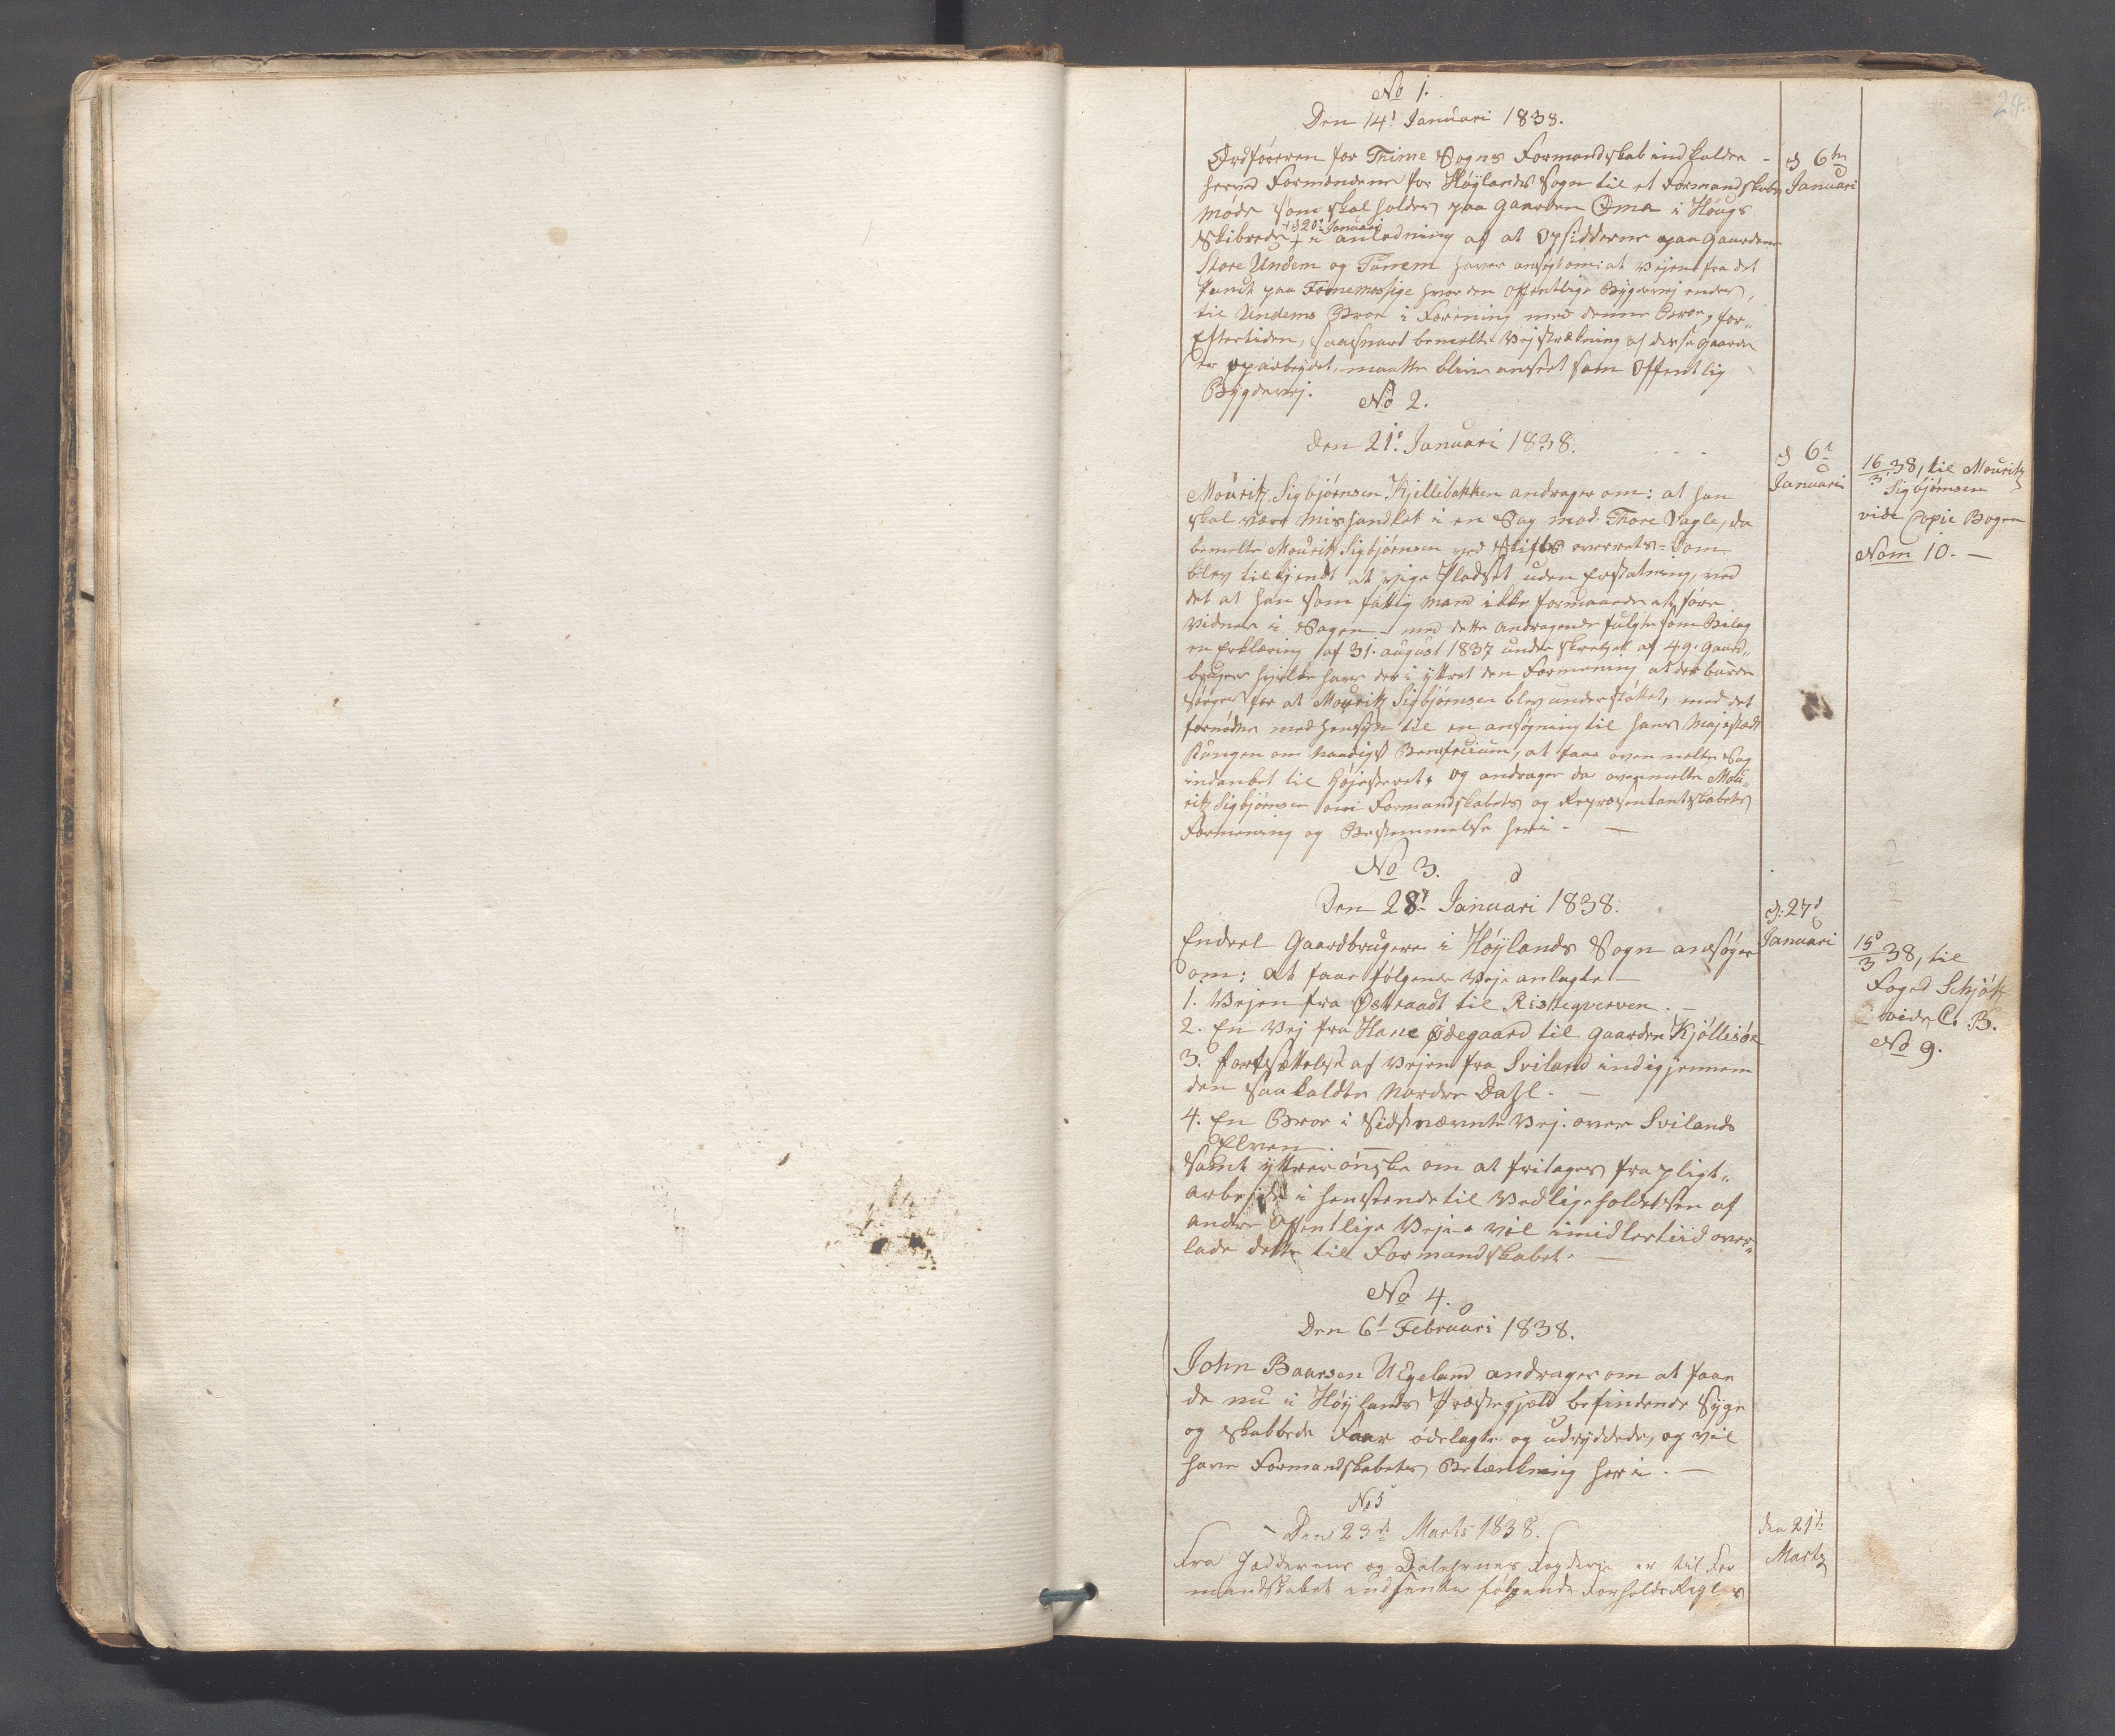 24.
No 1.
Den 14d Januari 1838.
Ordføreren for Thime Sogns Formandskab indkalder
herved Formændene for Høylands Sogn til et Formandskabs
møde som skal holdes paa gaarden Oma i Hougs
Skibrede + d 20d Januari i anledning af at Opsidderne paa gaarden
Store Undem og Tunem haver ansøgt om: at Vejen fra det
Punct paa Fosnemossige hvor den offentlige Bygdevej ender,
til Undems Broe i Forening med denne Broe, for-
Eftertiden, saasnart bemelte Vejstrækning af disse gaarde
er oparbejdet, maatte blive anseet som Offentlig
Bygdevej.
d 6te
Januari
No 2.
Den 21d Januari 1838.
Mouritz Sigbjørnsen Kjellibakken andrager om: at han
skal være mishandlet i en Sag mod Thore Vagle, da
bemelte Mouritz Sigbjørnsen ved Stifts overrets-Dom
blev tilkjendt at vige Pladset uden Erstatning, ved
det at han som fattig mand ikke formaaede at føre
Vidner i Sagen - med dette andragende fulgte som Bilag
en Erklæring af 31. august 1837 under skrevet af 49. gaard-
brugere hvilke have der i yttret den Formening at der burde
sørges for at Mouritz Sigbjørnsen blev understøttet, med det
fornødne med hensyn til en ansøgning til hans Majestæt
Kongen om naadigst Beneficium, at faae oven melte Sag
indanket til Højesteret. og andrager da ovenmelte Mou-
ritz Sigbjørnsen om Formandskabets og Repræsentantskabets
Formening og Bestemmelse heri. —
d 6t
Januari
16/3 38, til Mouritz
Sigbjørnsen
vide Copie Bogen
Nom 10. —
No 3.
Den 28d Januari 1838.
Endeel Gaardbrugere i Høylands Sogn ansøger
om: at faae følgende Veje anlagte
1. Vejen fra Østraadt til Riskeqverven. —
2. En Vej fra Hane Ødegaard til gaarden Kjøllisøe
3. Fortsættelse af Vejen fra Sviland ind igjennem
den saakaldte Nordre Dahl. —
4. En Broe i Sidstnævnte Vej. over Svilands
Elven. —
Samt yttrer ønske om at fritages fra pligt-
arbejde i henseende til Vedligeholdelsen af
andre offentlige Veje. vil imidlertiid over-
lade dette til Formandskabet. —
d. 27d
Januari
15/3 38, til
Foged Schjøtz
vide C. B.
No 9.
No 4.
Den 6t Februari 1838.
John Baarsen Uegeland andrager om at faae
de nu i Høylands Præstegjæld befindende Syge
og skabbede Faar ødelagte og udryddede, og vil
have Formandskabets Betænkning heri. —
No 5
Den 23d Marts 1838.
Fra Jedderens og Dalehrnes Fogderie er til For
mandskabet indsente følgende Forholds Regler
den 21de
Marts